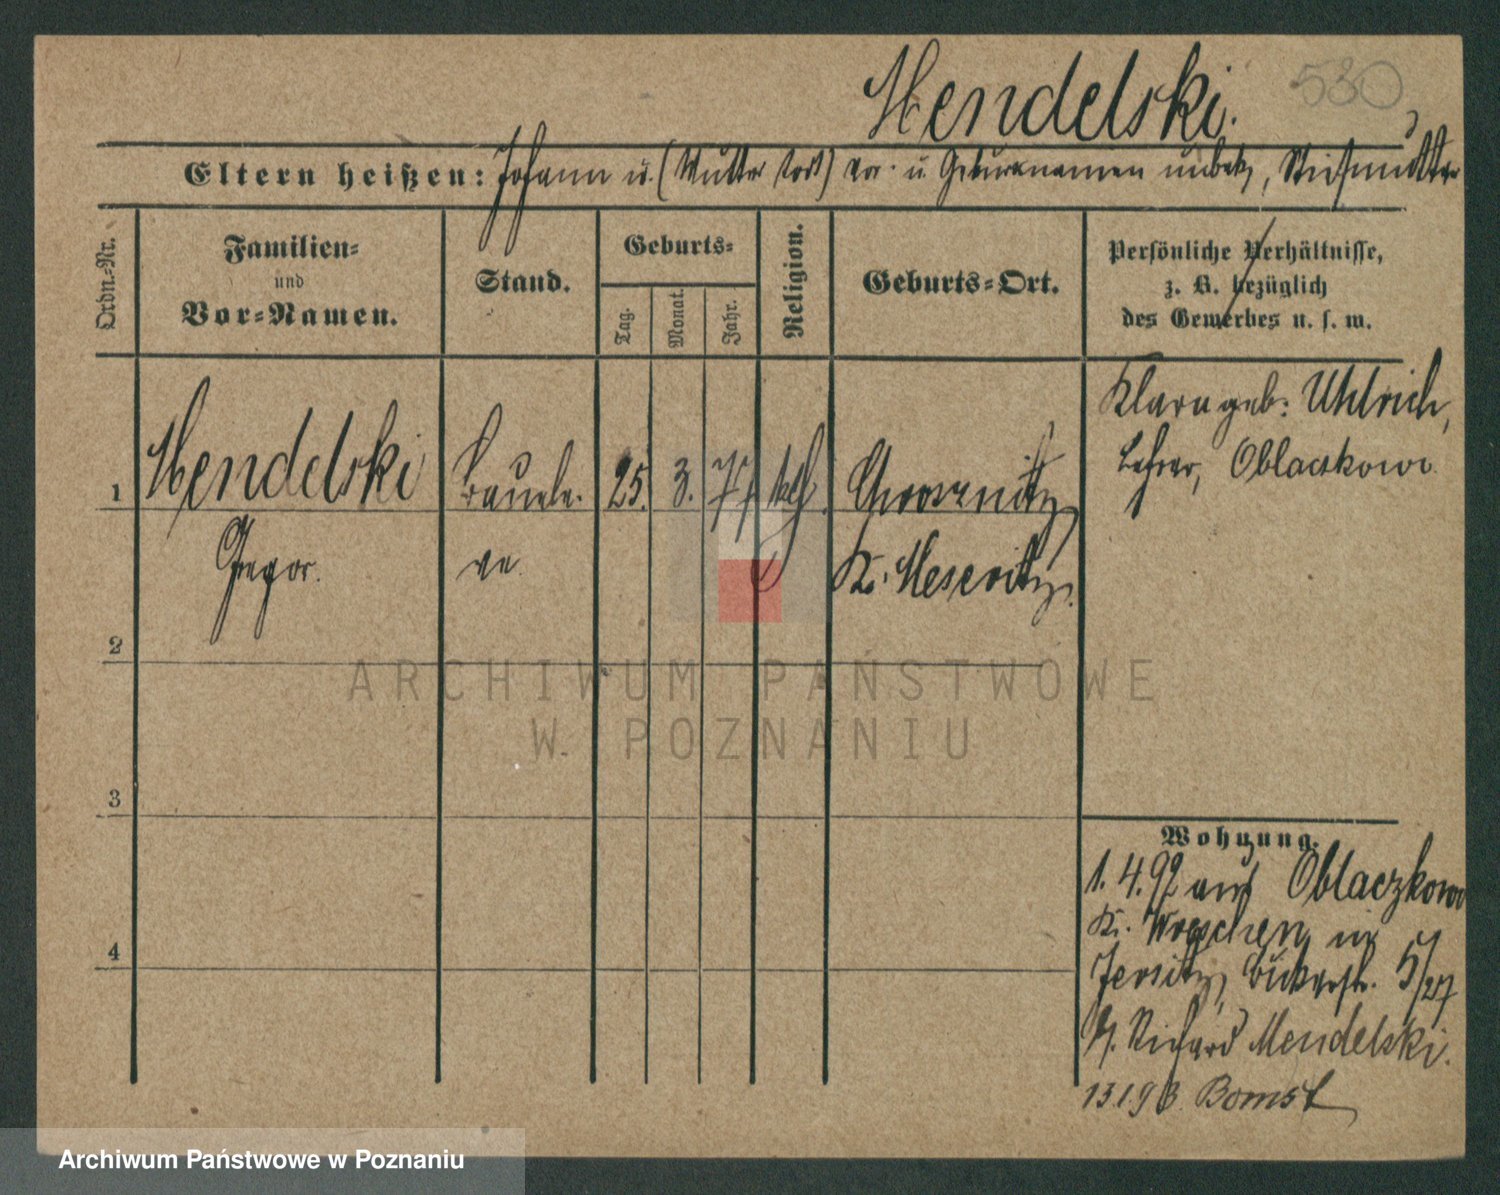 530
Mendelski.
Eltern heißen: Johann u. (Mutter tot) Vor- u Geburtsnamen unbek, Stiefmutter
Ordn.-Nr.
Familien-
und
Vor-Namen.
Stand.
Geburts-
Tag.
Monat.
Jahr.
Religion.
Geburts-Ort.
Persönliche Verhältnisse,
z. B. bezüglich
des Gewerbes u. s. w.
Klara geb: Uhlrich,
Lehrer, Oblaczkowo
1 Mendelski 25. 3. 77 kth.
Gregor.
K. Meseritz.
2
3
4
Wohnung.
1. 4. 92 aus Oblaczkowo
Kr. Wreschen in
Jersitz, 5/27
b/. Richard Mendelski.
13 1 93 Bomst
ARCHIWUM PAŃSTWOWE
W POZNANIU
Archiwum Państwowe w Poznaniu